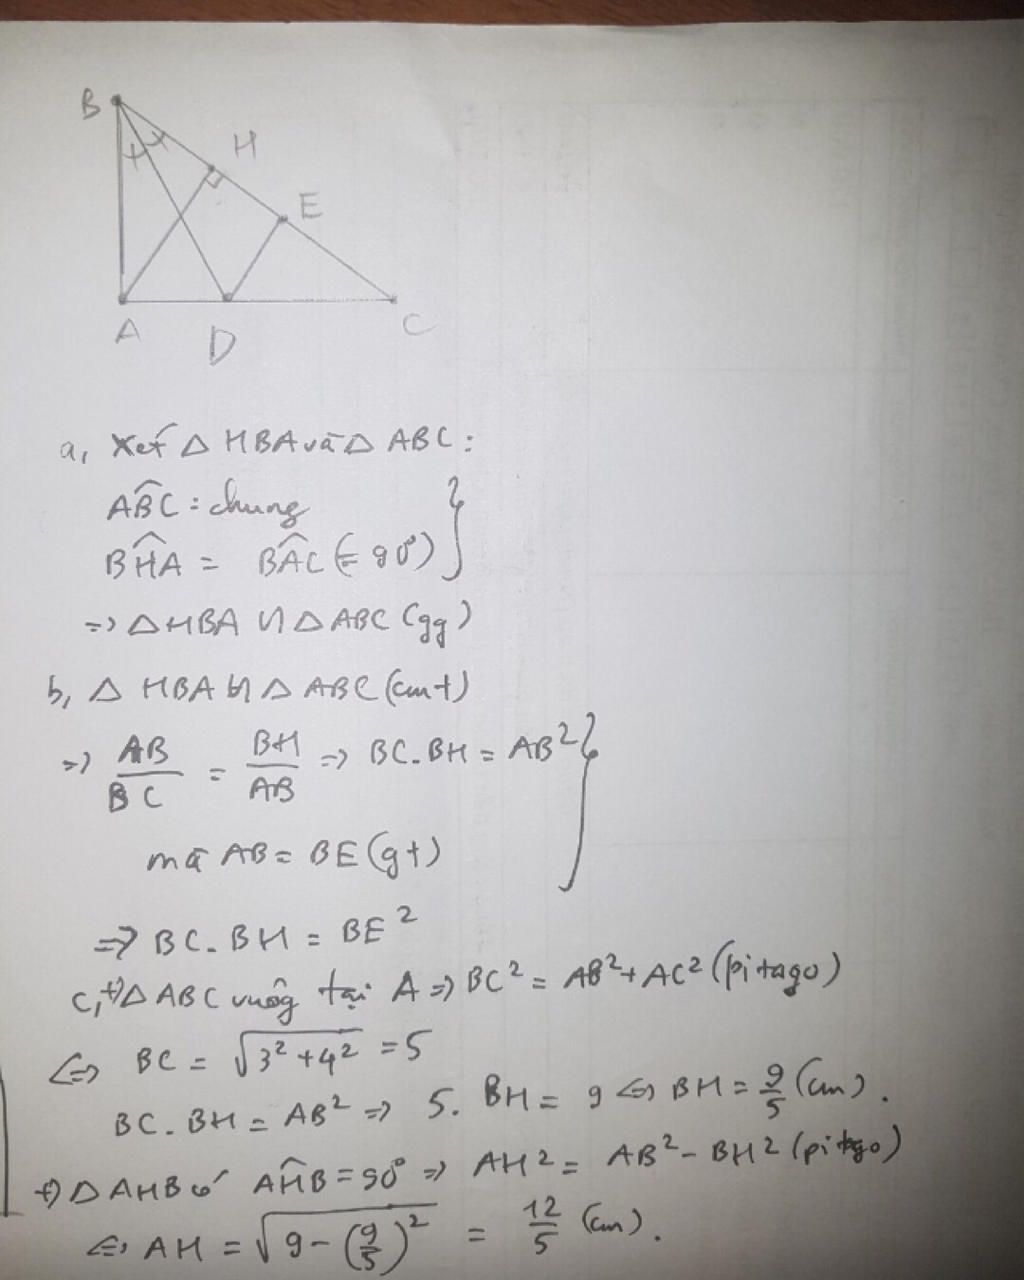 B
H
E
A
D
C
a, Xét △ HBA và △ ABC:
ABC: chung
BHA = BAC (= 90°)
=> △HBA ∽ △ABC (gg)
b, △ HBA ∽ △ ABC (cmt)
=> AB/BC = BH/AB => BC.BH = AB²
mà AB = BE (gt)
=> BC.BH = BE²
c, +) △ABC vuông tại A => BC² = AB² + AC² (pitago)
<=> BC = √(3² + 4²) = 5
BC.BH = AB² => 5.BH = 9 <=> BH = 9/5 (cm).
+) △AHB có AHB = 90° => AH² = AB² - BH² (pitago)
<=> AH = √(9 - (9/5)²) = 12/5 (cm).